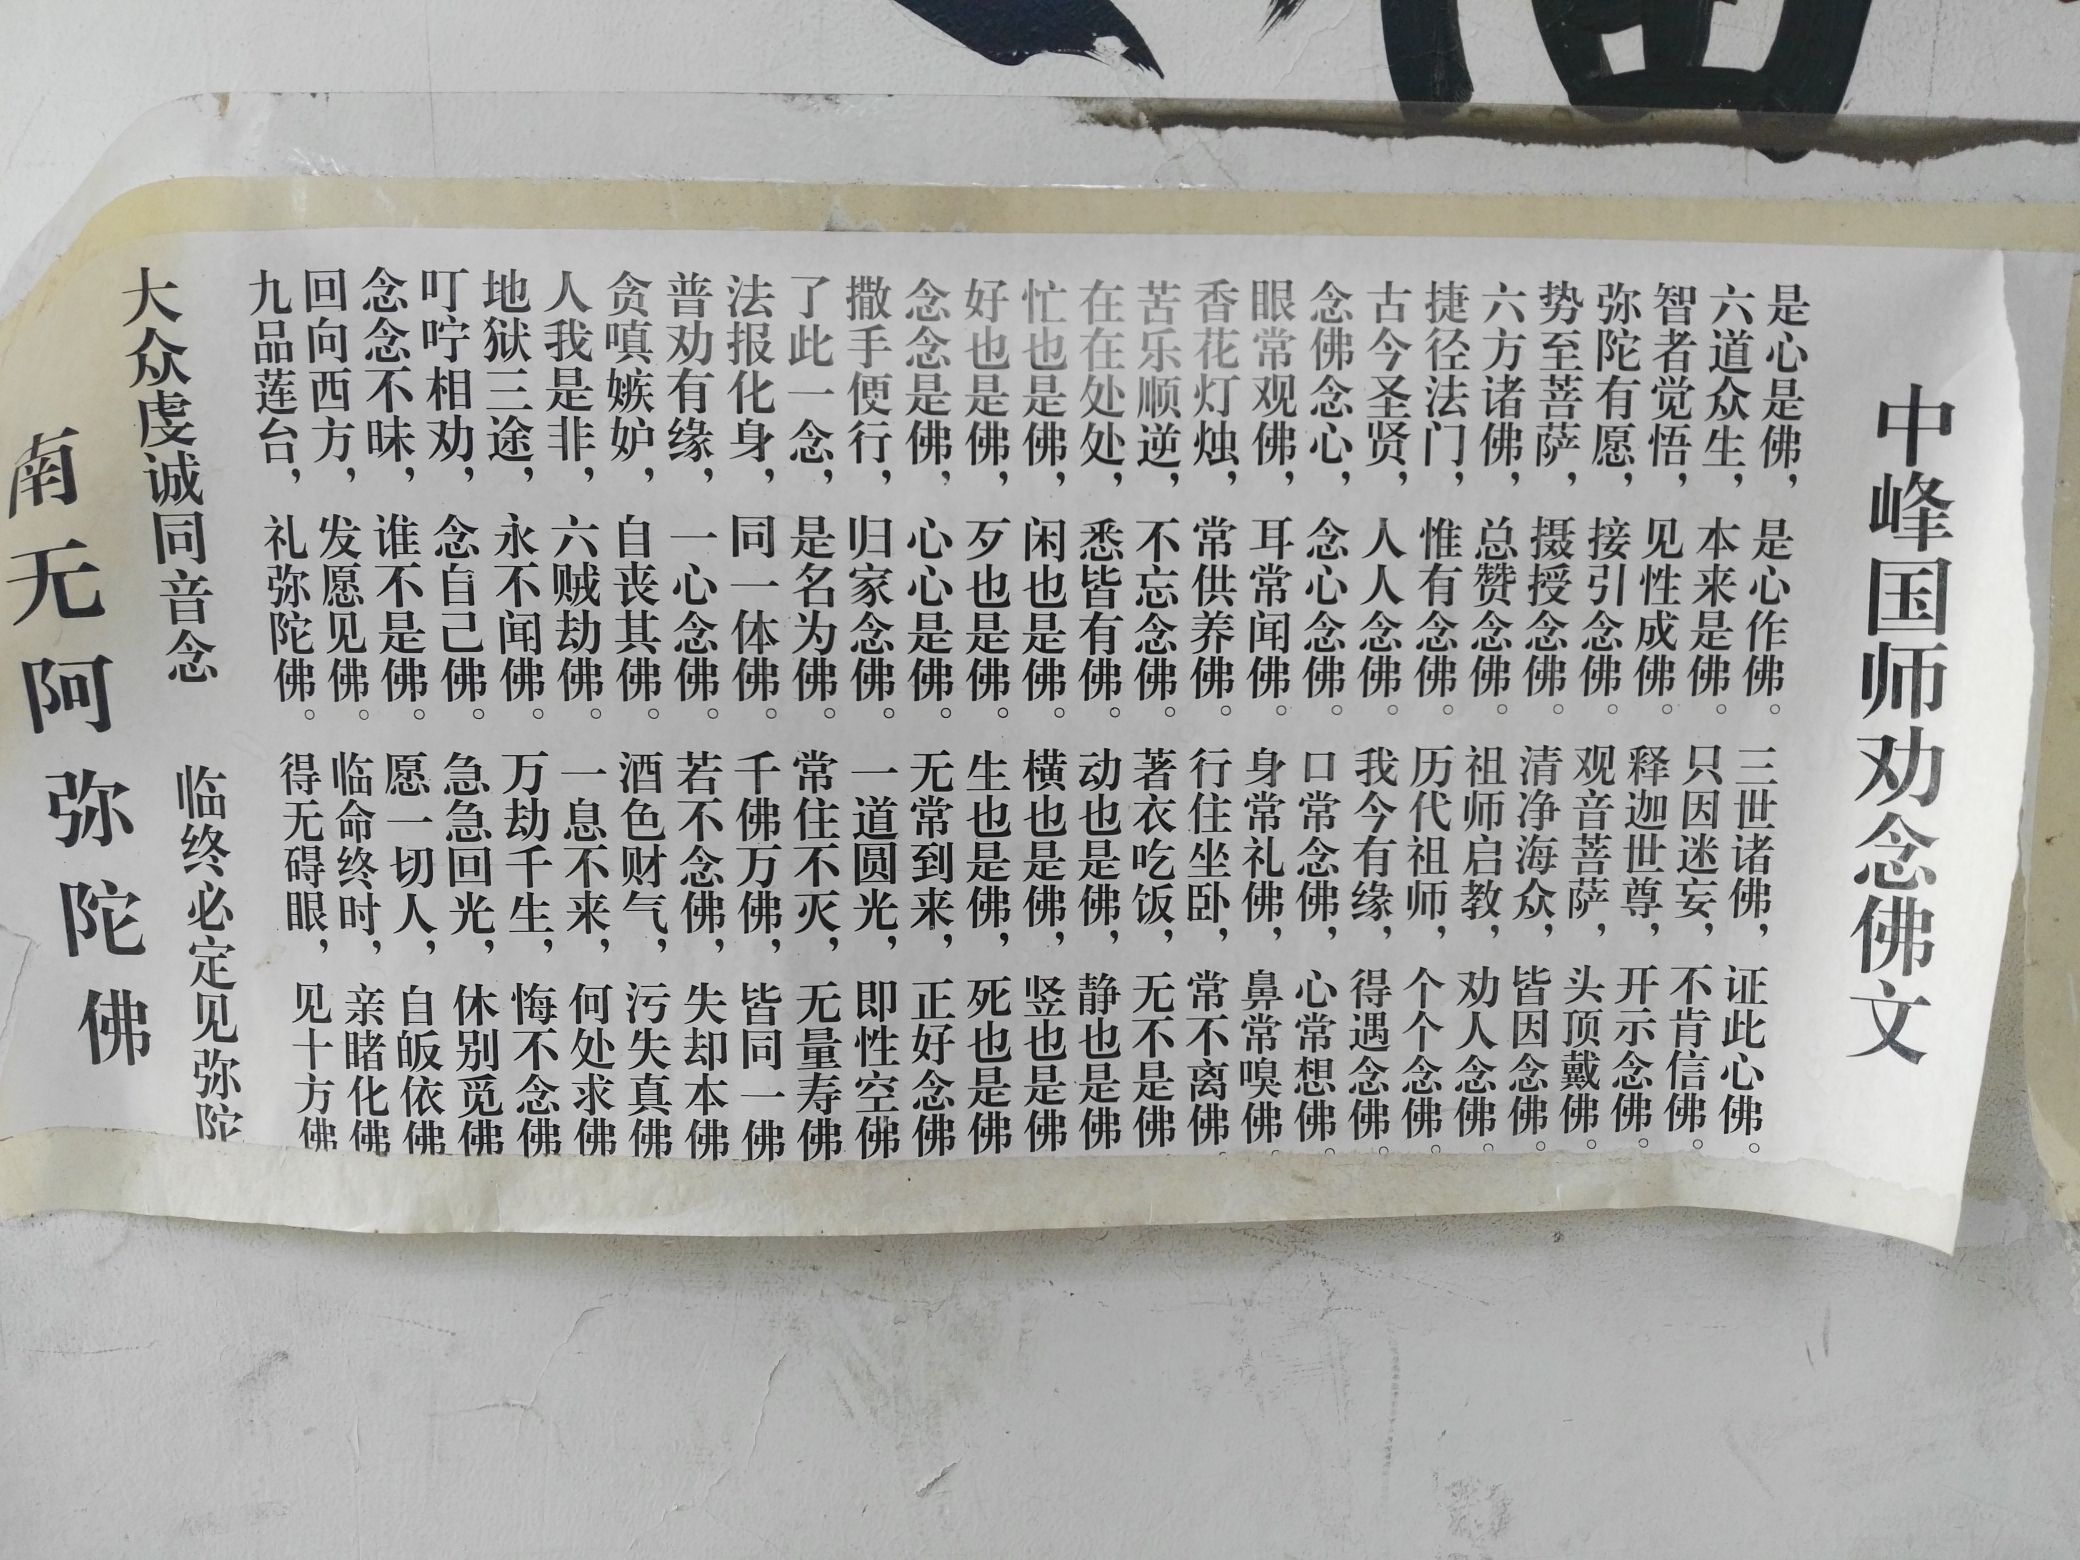 中峰国师劝念佛文
是心是佛，是心作佛。三世诸佛，证此心佛。
六道众生，本来是佛。只因迷妄，不肯信佛。
智者觉悟，见性成佛。释迦世尊，开示念佛。
弥陀有愿，接引念佛。观音菩萨，头顶戴佛。
势至菩萨，摄授念佛。清净海众，皆因念佛。
六方诸佛，总赞念佛。祖师启教，劝人念佛。
捷径法门，惟有念佛。历代祖师，个个念佛。
古今圣贤，人人念佛。我今有缘，得遇念佛。
念佛念心，念心念佛。口常念佛，心常想佛。
眼常观佛，耳常闻佛。身常礼佛，鼻常嗅佛。
香花灯烛，常供养佛。行住坐卧，常不离佛。
苦乐顺逆，不忘念佛。著衣吃饭，无不是佛
在在处处，悉皆有佛。动也是佛，静也是佛
忙也是佛，闲也是佛。横也是佛，竖也是佛
好也是佛，歹也是佛。生也是佛，死也是佛
念念是佛，心心是佛。无常到来，正好念佛
撒手便行，归家念佛。一道圆光，即性空佛
了此一念，是名为佛。常住不灭，无量寿佛
法报化身，同一体佛。千佛万佛，皆同一佛
普劝有缘，一心念佛。若不念佛，失却本佛
贪嗔嫉妒，自丧其佛。酒色财气，污失真佛
人我是非，六贼劫佛。一息不来，何处求佛
地狱三途，永不闻佛。万劫千生，悔不念佛
叮咛相劝，念自己佛。急急回光，休别觅佛
念念不昧，谁不是佛。愿一切人，自皈依佛
回向西方，发愿见佛。临命终时，亲睹化佛
九品莲台，礼弥陀佛。得无碍眼，见十方佛
大众虔诚同音念 临终必定见弥陀
南无阿弥陀佛